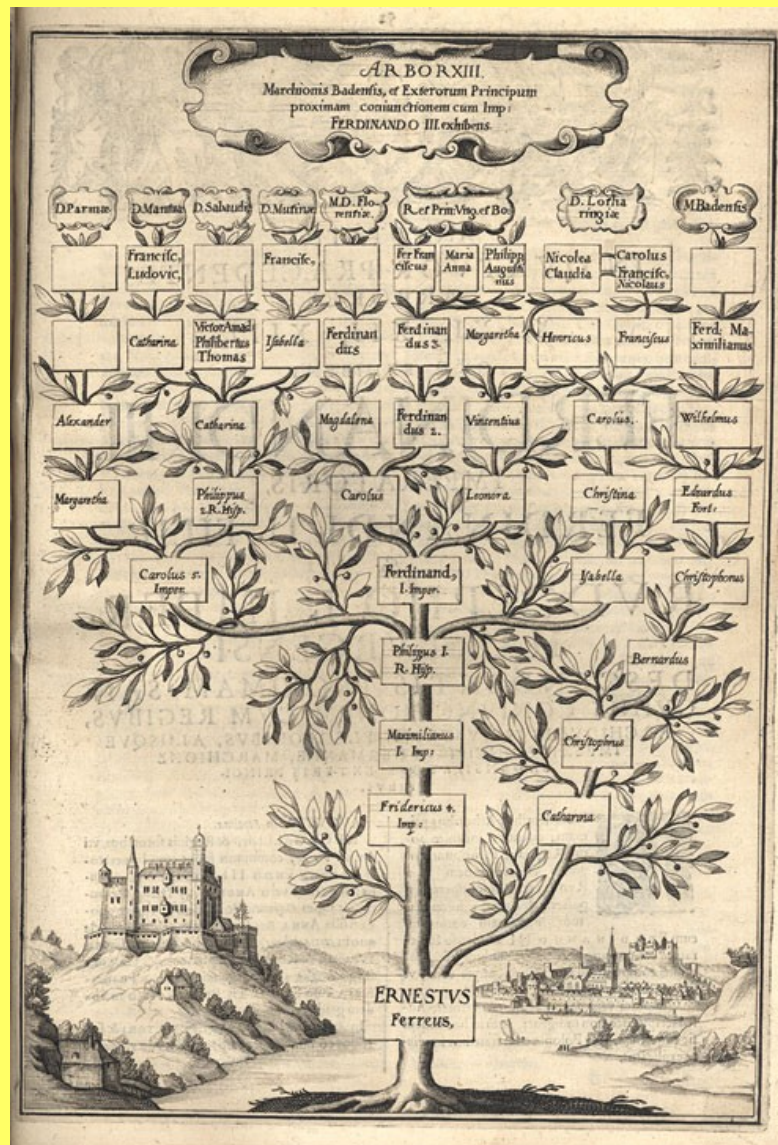 ARBOR XIII.
Marchionis Badensis, et Exterorum Principum
proximam coniunctionem cum Imp:
FERDINANDO III. exhibens.
D. Parmæ
D. Mantuæ
D. Sabaudiæ
D. Mutinæ
M. D. Flo-
rentiæ.
R. et Prin: Vng. et Bo:
D. Lotha
ringiæ
M. Badensis
Francisc,
Ludovic,
Francisc,
Fer Fran
ciscus
Maria
Anna
Philipp
Augusti-
nus
Nicolea
Claudia
Carolus
Francisc,
Nicolaus
Catharina
Victor Amad
Philibertus
Thomas
Isabella
Ferdinan
dus
Ferdinan
dus 3.
Margaretha
Henricus
Franciscus
Ferd: Ma-
ximilianus
Alexander
Catharina
Magdalena
Ferdinan
dus 2.
Vincentius
Carolus.
Wilhelmus
Margaretha
Philippus
2. R. Hisp.
Carolus
Leonora
Christina
Eduardus
Fort:
Carolus 5.
Imper.
Ferdinand,
I. Imper.
Isabella
Christophorus
Philippus I.
R. Hisp.
Bernardus
Maximilianus
I. Imp:
Christophorus
Fridericus 4.
Imp:
Catharina
ERNESTVS
Ferreus,